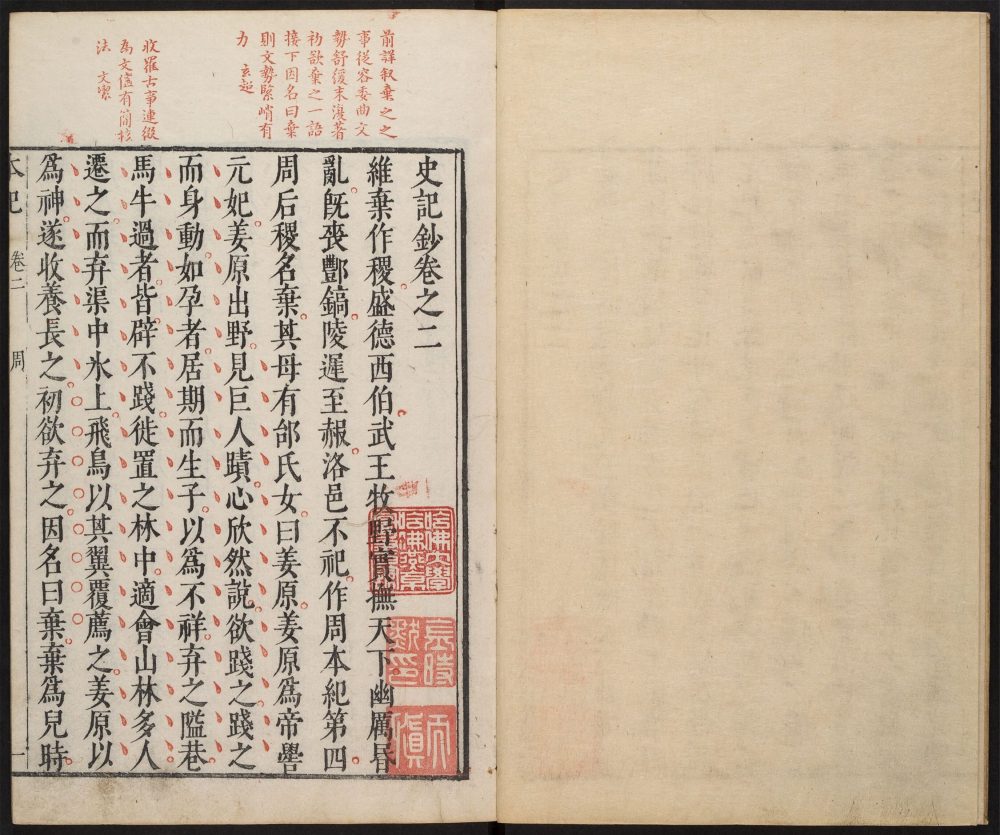 前詳叙棄之之
事從容委曲文
勢舒緩末復著
初欲棄之一語
接下因名曰棄
則文勢緊峭有
力
收羅古事連綴
為文儘有簡核
法
史記鈔卷之二
維棄作稷盛德西伯武王牧野實撫天下幽厲昏
亂旣喪酆鎬陵遲至赧洛邑不祀作周本紀第四
周后稷名棄其母有邰氏女曰姜原姜原爲帝嚳
元妃姜原出野見巨人蹟心欣然說欲踐之踐之
而身動如孕者居期而生子以爲不祥弃之隘巷
馬牛過者皆辟不踐徙置之林中適會山林多人
遷之而弃渠中氷上飛鳥以其翼覆薦之姜原以
爲神遂收養長之初欲弃之因名曰棄棄爲兒時
本紀 卷二 周 一
哈佛大學
哈佛燕京